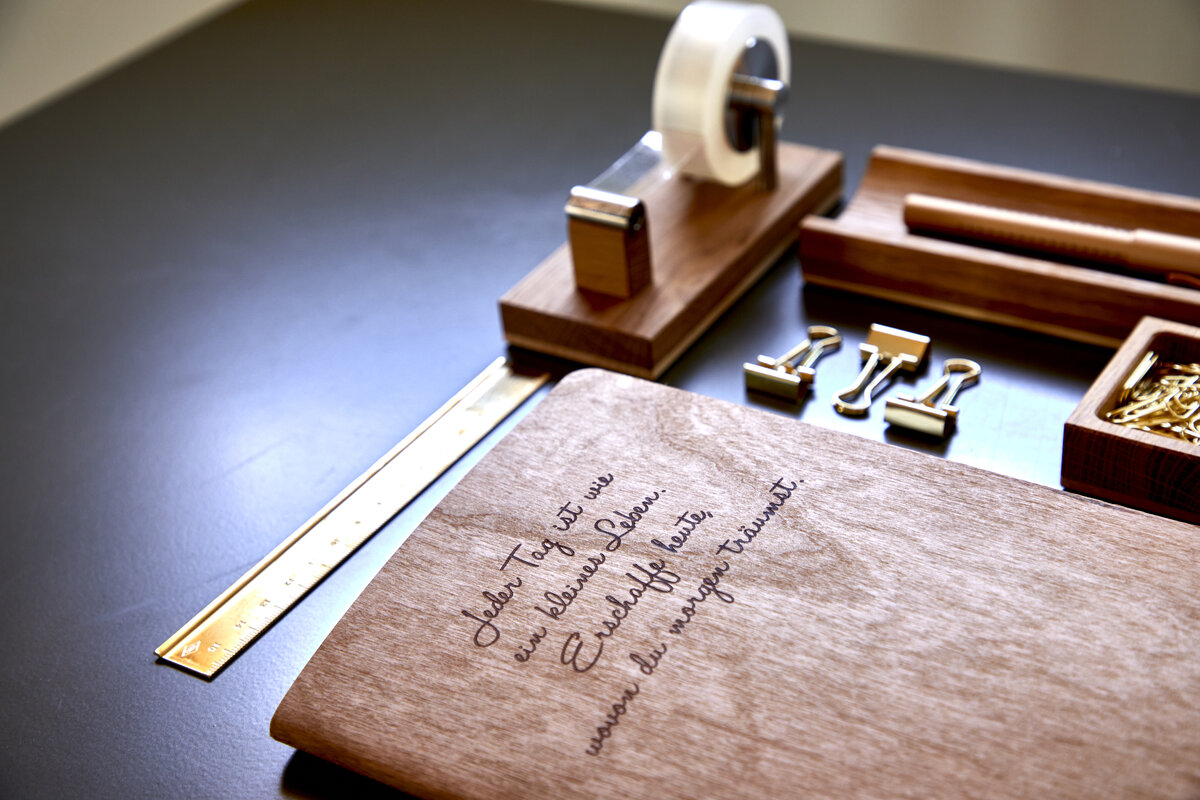 Jeder Tag ist wie
ein kleines Leben.
Erschaffe heute,
wovon du morgen träumst.